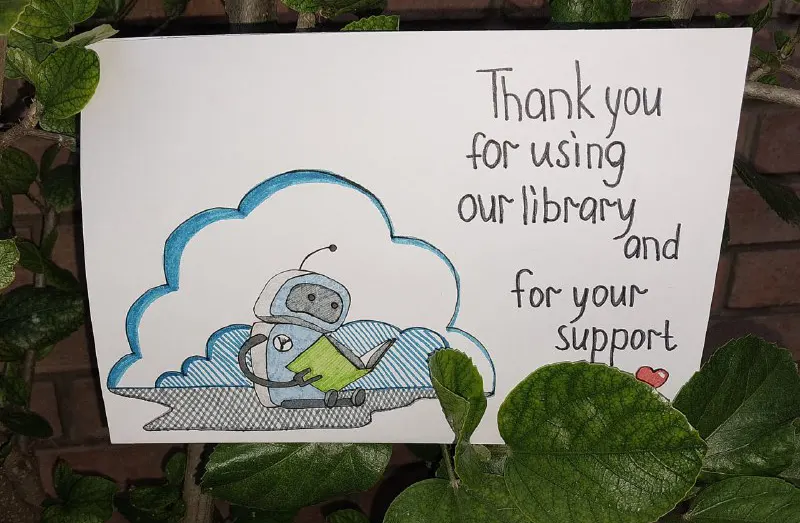 Thank you
for using
our library
and
for your
support